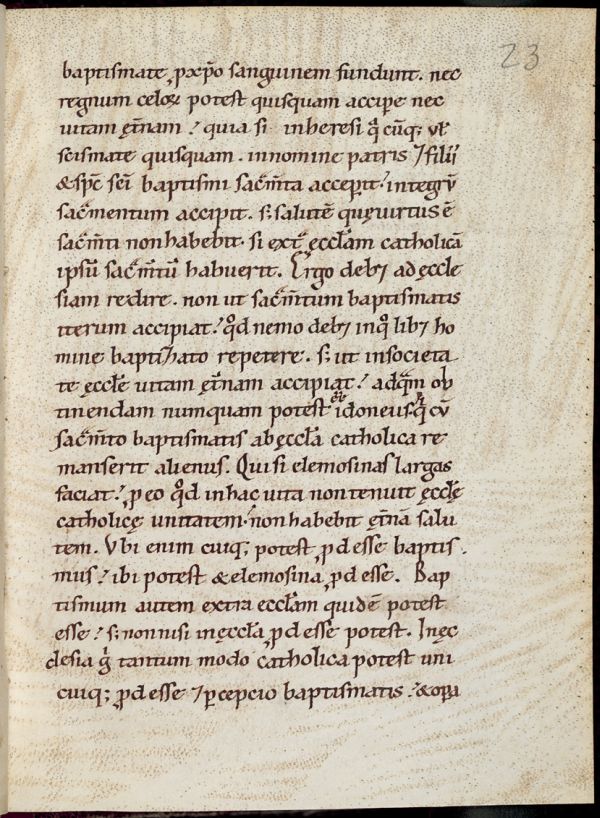 23
baptismate ꝓ xp̄o sanguinem fundunt. nec
regnum celoꝝ potest quisquam accipe nec
uitam ęt̄nam? quia si in heresi q̄ cūq; uł
scismate quisquam. in nomine patris ⁊ filii
& sp̄c sc̄i baptismi sac̄m̄ta accep̄it? integrū
sac̄mentum accipit. s; salutē quę uirtus ē
sac̄m̄ti non habebit. si ext̄ ęccłam catholicā
ipsū sac̄m̄tū habuerit. Ergo debꝫ ad ęccle
siam redire. non ut sac̄m̄tum baptismatis
iterum accipiat? qđ nemo debꝫ in q̊ libꝫ ho
mine baptizato repetere. s; ut in societa
te ęccłę uitam ęt̄nam accipiat? ad q̄m ob
tinendam numquam potest eē idoneus q̄ cū
sac̄m̄to baptismatis ab ęccła catholica re
manserit alienus. Qui si elemosinas largas
faciat? ꝓ eo qđ in hac uita non tenuit ęccłę
catholicę unitatem. non habebit ęt̄nā salu
tem. Vbi enim cuiq; potest ꝓdesse baptis
mus? ibi potest & elemosina ꝓdesse. Bap
tismum autem extra ecclam quidē potest
esse? s; non nisi in ęccła ꝓdesse potest. In ęc
clesia g̊ tantum modo catholica potest uni
cuiq; ꝓdesse ⁊ ꝑcepcio baptismatis? & oꝑa